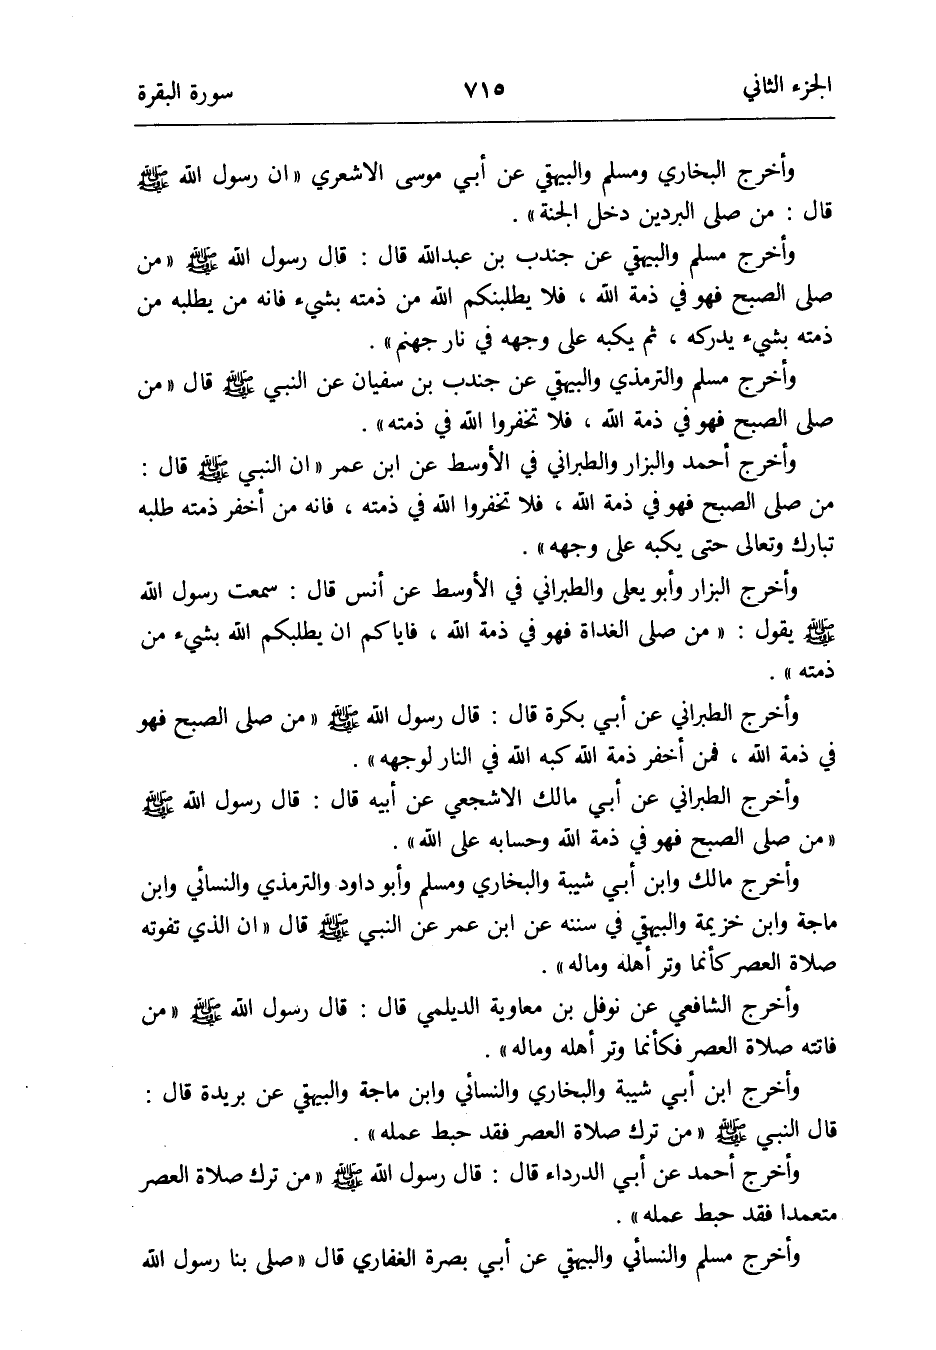 الجزء الثاني ٧١٥ سورة البقرة
وأخرج البخاري ومسلم والبيهقي عن أبي موسى الاشعري «ان رسول الله ﷺ
قال : من صلى البردين دخل الجنة» .
وأخرج مسلم والبيهقي عن جندب بن عبدالله قال : قال رسول الله ﷺ «من
صلى الصبح فهو في ذمة الله ، فلا يطلبنكم الله من ذمته بشيء فانه من يطلبه من
ذمته بشيء يدركه ، ثم يكبه على وجهه في نار جهنم» .
وأخرج مسلم والترمذي والبيهقي عن جندب بن سفيان عن النبي ﷺ قال «من
صلى الصبح فهو في ذمة الله ، فلا تخفروا الله في ذمته» .
وأخرج أحمد والبزار والطبراني في الأوسط عن ابن عمر «ان النبي ﷺ قال :
من صلى الصبح فهو في ذمة الله ، فلا تخفروا الله في ذمته ، فانه من أخفر ذمته طلبه
تبارك وتعالى حتى يكبه على وجهه» .
وأخرج البزار وأبو يعلى والطبراني في الأوسط عن أنس قال : سمعت رسول الله
ﷺ يقول : «من صلى الغداة فهو في ذمة الله ، فاياكم ان يطلبكم الله بشيء من
ذمته» .
وأخرج الطبراني عن أبي بكرة قال : قال رسول الله ﷺ «من صلى الصبح فهو
في ذمة الله ، فمن أخفر ذمة الله كبه الله في النار لوجهه» .
وأخرج الطبراني عن أبي مالك الاشجعي عن أبيه قال : قال رسول الله ﷺ
«من صلى الصبح فهو في ذمة الله وحسابه على الله» .
وأخرج مالك وابن أبي شيبة والبخاري ومسلم وأبو داود والترمذي والنسائي وابن
ماجة وابن خزيمة والبيهقي في سننه عن ابن عمر عن النبي ﷺ قال «ان الذي تفوته
صلاة العصر كأنما وتر أهله وماله» .
وأخرج الشافعي عن نوفل بن معاوية الديلمي قال : قال رسول الله ﷺ «من
فاتته صلاة العصر فكأنما وتر أهله وماله» .
وأخرج ابن أبي شيبة والبخاري والنسائي وابن ماجة والبيهقي عن بريدة قال :
قال النبي ﷺ «من ترك صلاة العصر فقد حبط عمله» .
وأخرج أحمد عن أبي الدرداء قال : قال رسول الله ﷺ «من ترك صلاة العصر
متعمدا فقد حبط عمله» .
وأخرج مسلم والنسائي والبيهقي عن أبي بصرة الغفاري قال «صلى بنا رسول الله